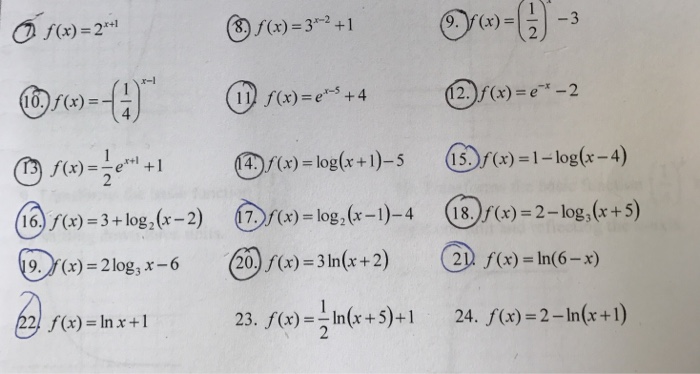 7. f(x) = 2^{x+1} 8. f(x) = 3^{x-2} + 1 9. f(x) = (1/2)^x - 3
10. f(x) = -(1/4)^{x-1} 11. f(x) = e^{x-5} + 4 12. f(x) = e^{-x} - 2
13. f(x) = 1/2 e^{x+1} + 1 14. f(x) = log(x+1) - 5 15. f(x) = 1 - log(x-4)
16. f(x) = 3 + log_2(x-2) 17. f(x) = log_2(x-1) - 4 18. f(x) = 2 - log_3(x+5)
19. f(x) = 2 log_3 x - 6 20. f(x) = 3 ln(x+2) 21. f(x) = ln(6-x)
22. f(x) = ln x + 1 23. f(x) = 1/2 ln(x+5) + 1 24. f(x) = 2 - ln(x+1)